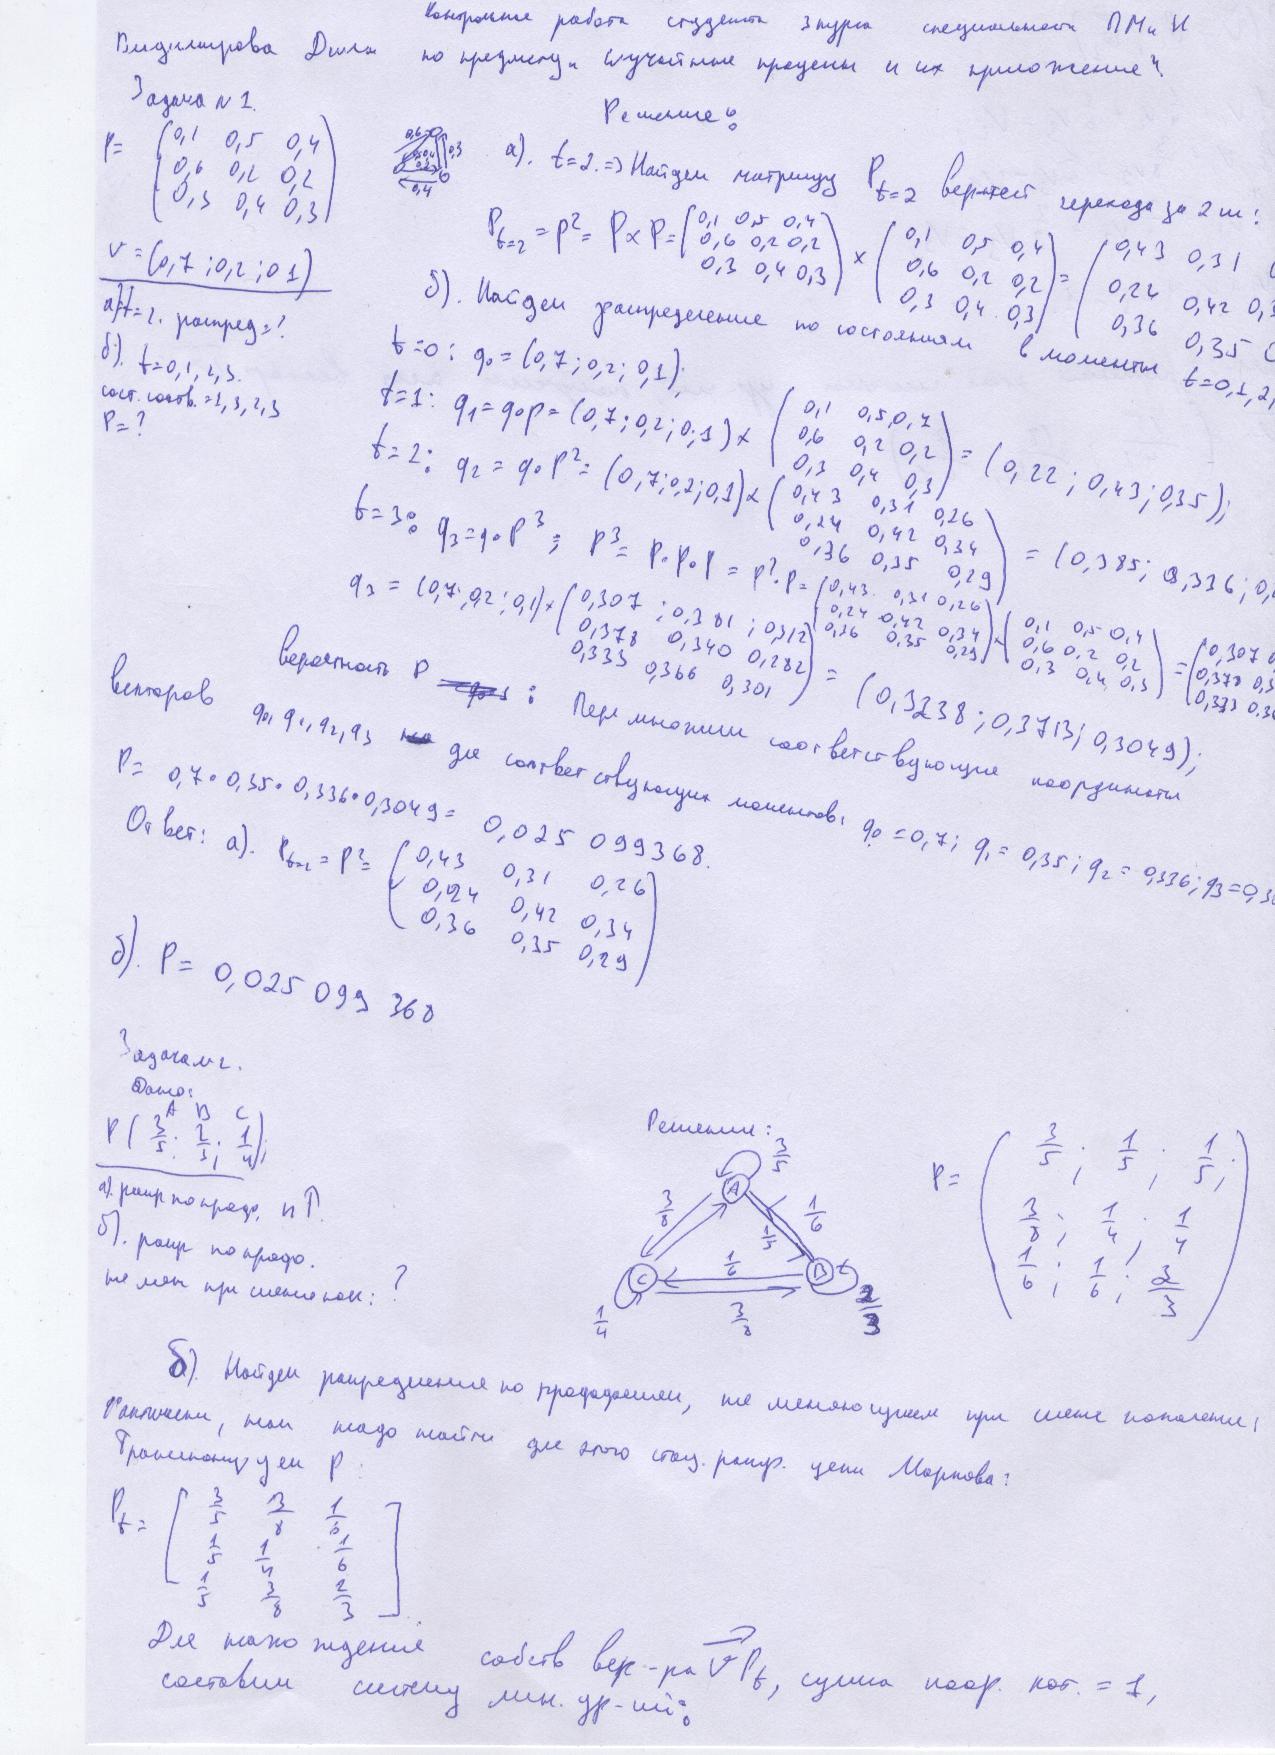 Контрольная работа студента 3 курса специальности ПМиИ
Владимирова Дмитрия по предмету „Случайные процессы и их приложение".
Задача №1.
Решение:
P= (0,1 0,5 0,4
0,6 0,2 0,2
0,3 0,4 0,3)
0,6 0,3 0,4
v=(0,7;0,2;0,1)
а) t=2. распред=?
б). t=0,1,2,3.
сост. соотв.=1,3,2,3
P=?
а). t=2.=> Найдем матрицу P t=2 переходa за 2 ш:
P t=2 = P² = P×P= (0,1 0,5 0,4
0,6 0,2 0,2
0,3 0,4 0,3) × (0,1 0,5 0,4
0,6 0,2 0,2
0,3 0,4 0,3) = (0,43 0,31
0,24 0,42 0,3
0,36 0,35
б). Найдем распределение по состояниям в моменты t=0,1,2,
t=0: q0=(0,7;0,2;0,1);
t=1: q1=q0P=(0,7;0,2;0,1)× (0,1 0,5 0,4
0,6 0,2 0,2
0,3 0,4 0,3) = (0,22;0,43;0,35);
t=2: q2=q0P²=(0,7;0,2;0,1)× (0,43 0,31 0,26
0,24 0,42 0,34
0,36 0,35 0,29) = (0,385; 0,336; 0,
t=3: q3=q0P³; P³=P·P·P=P²·P= (0,43 0,31 0,26
0,24 0,42 0,34
0,36 0,35 0,29) · (0,1 0,5 0,4
0,6 0,2 0,2
0,3 0,4 0,3) = (0,307
0,378
0,333
q3=(0,7;0,2;0,1)× (0,307;0,381;0,312
0,378 0,340 0,282
0,333 0,366 0,301) = (0,3238;0,3713;0,3049);
Вероятность P : Перемножим соответствующие координаты
векторов q0,q1,q2,q3 для соответствующих моментов: q0=0,7; q1=0,35; q2=0,336; q3=0,30
P= 0,7·0,35·0,336·0,3049= 0,025 099368.
Ответ: а). P t=2=P²= (0,43 0,31 0,26
0,24 0,42 0,34
0,36 0,35 0,29)
б). P= 0,025 099 368
Задача №2.
Дано:
A B C
P( 3/5; 2/3; 1/4);
а). распр по продо, n↑.
б). распр по продо.
не мен при смене пок: ?
Решение:
A 3/5
3/8 1/5 1/6
C 1/6 B
1/4 3/8 2/3
P= (3/5; 1/5; 1/5;
3/8; 1/4; 1/4
1/6; 1/6; 2/3)
б). Найдем распределение по продолжением, не меняющуюся при смене поколения;
Фактически, нам надо найти для этого стац. распр. цепи Маркова:
Транспонируем P:
Pt= [3/5 3/8 1/6
1/5 1/4 1/6
1/5 3/8 2/3]
Для нахождения собств вер-ра v Pt, сумма коор. кот. = 1,
составим систему лин. ур-ий: